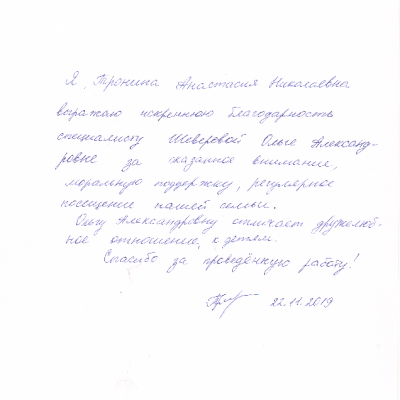 Я, Тронина Анастасия Николаевна
выражаю искреннюю благодарность
специалисту Шверовой Ольге Александ-
ровне за оказанное внимание,
моральную поддержку, регулярное
посещение нашей семьи.
Ольгу Александровну отличает дружелюб-
ное отношение к детям.
Спасибо за проведённую работу!
22.11.2019